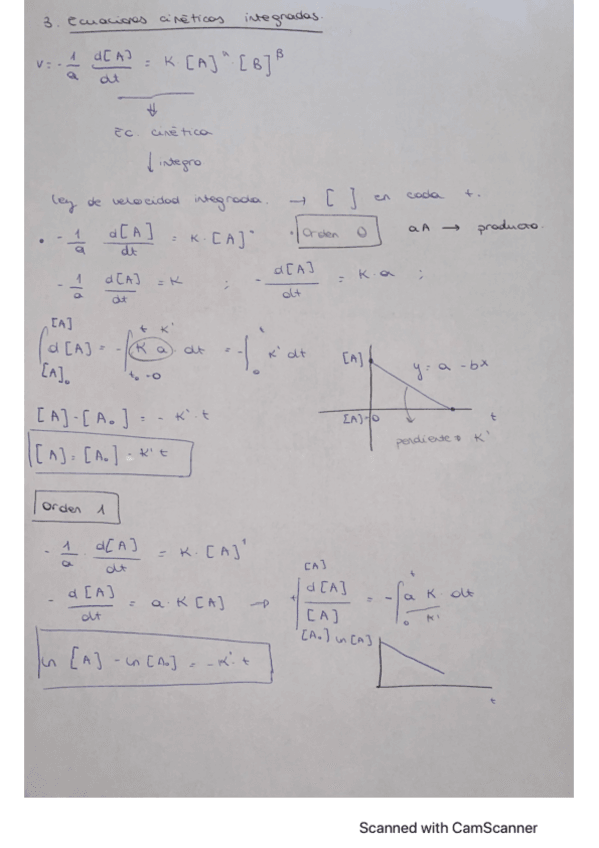 3. Ecuaciones cinéticas integradas.
v = - 1/a d[A]/dt = K · [A]^α · [B]^β
Ec. cinética
↓ integro
Ley de velocidad integrada. → [ ] en cada t.
• - 1/a d[A]/dt = K · [A]° · Orden 0 aA → producto.
- 1/a d[A]/dt = K ; - d[A]/dt = K · a ;
∫ [A]₀ [A] d[A] = - ∫ t₀=0 t K a · dt = - ∫ 0 t K' dt
K'
[A] y = a - bx
[A]=0 t
pendiente = K'
[A] - [A₀] = - K' · t
[A] = [A₀] - K' t
Orden 1
- 1/a · d[A]/dt = K · [A]¹
- d[A]/dt = a · K [A] → ∫ [A₀] [A] d[A]/[A] = - ∫ 0 t a K dt
K'
ln [A] - ln [A₀] = - K' · t
ln [A]
t
Scanned with CamScanner